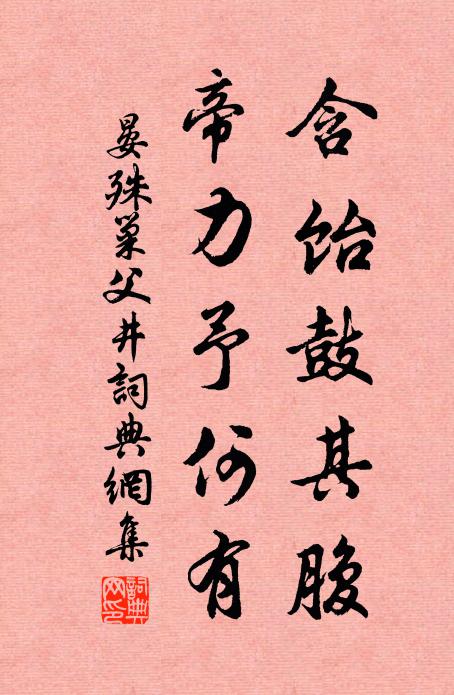 含飴鼓其腹
帝力予何有
晏殊巢父井詞典網集
詞典網印